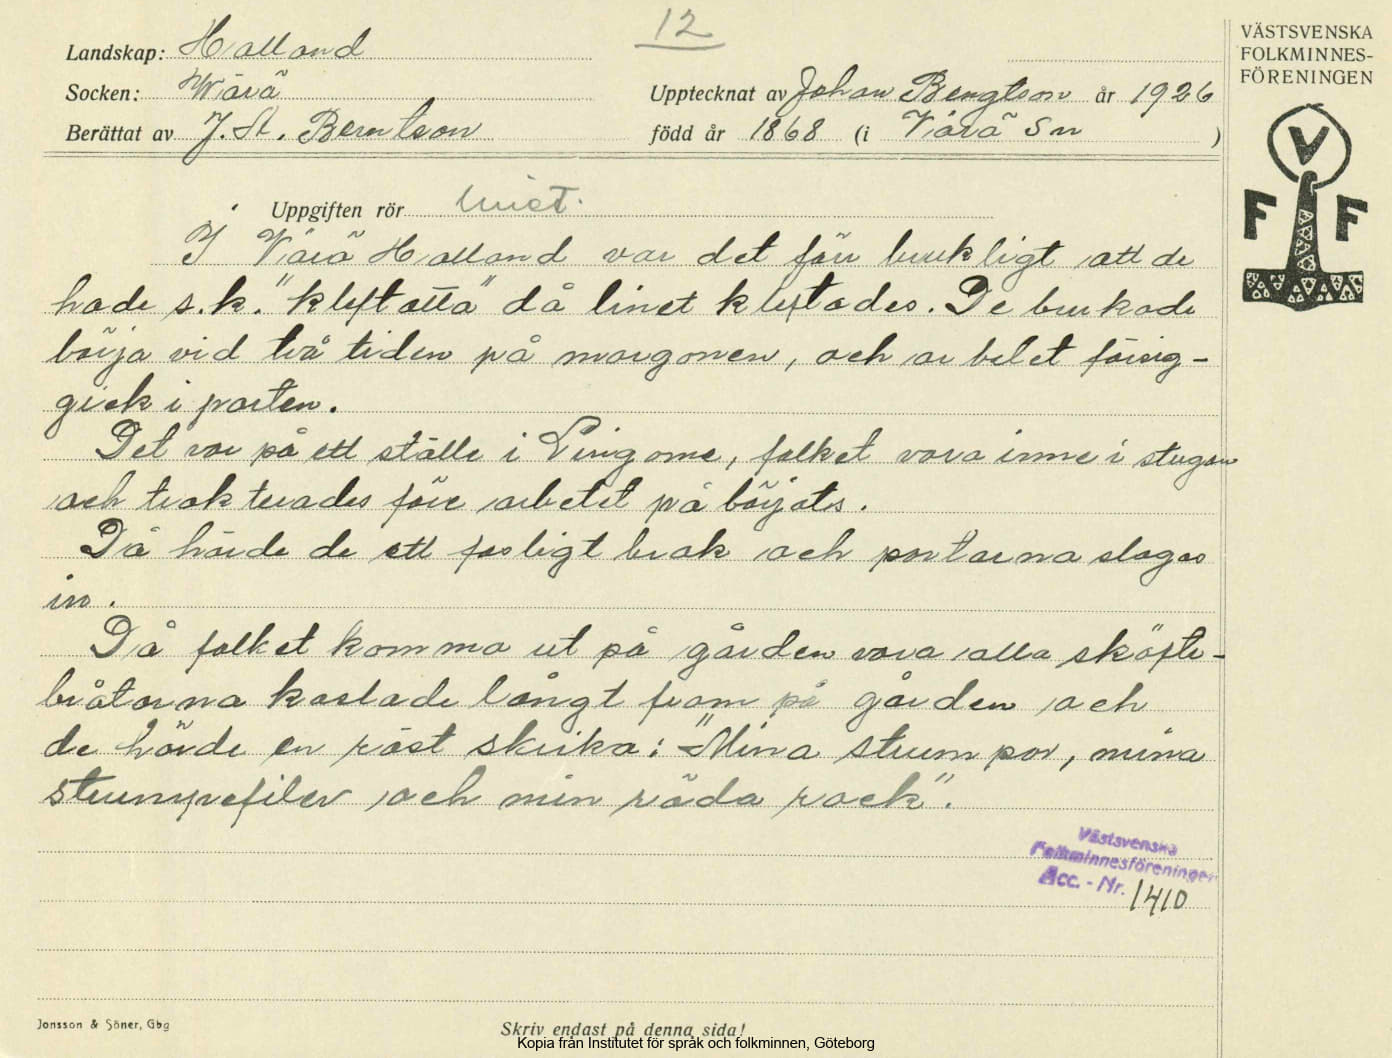 12
Landskap: Halland
VÄSTSVENSKA
FOLKMINNES-
FÖRENINGEN
Socken: Wärö
Upptecknat av Johan Bengtson år 1926
Berättat av J. A. Berntson
född år 1868 (i Värö sn )
V
F F
Uppgiften rör
I Värö Halland var det förr brukligt att de
hade s.k. "kleftatta" då linet kleftades. De brukade
börja vid två tiden på morgonen, och arbetet försig-
gick i porten.
Det var på ett ställe i Lingome, folket vora inne i stugan
och trakterades före arbetet påbörjats.
Då hörde de ett fasligt brak och portarna slogos
in.
Då folket komma ut på gården vora alla sköfte-
bråtarna kastade långt fram på gården och
de hörde en röst skrika: "Mina strumpor, mina
strumpefiler och min röda rock".
Västsvenska
Folkminnesföreningen
Acc. - Nr. 1410
Jonsson & Söner, Gbg
Skriv endast på denna sida!
Kopia från Institutet för språk och folkminnen, Göteborg